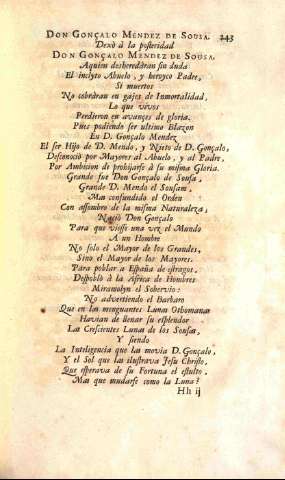 DON GONÇALO MÉNDEZ DE SOUSA. 243
Dexò à la posteridad
DON GONÇALO MENDEZ DE SOUSA.
Aquien desheredàran sin duda
El inclyto Abuelo, y heroyco Padre,
Si muertos
No cobràran en gajes de Inmortalidad,
Lo que vivos
Perdieron en avançes de gloria.
Pues podiendo ser ultimo Blazon
En D. Gonçalo Mendez
El ser Hijo de D. Mendo, y Nieto de D. Gonçalo,
Desconociò por Mayores al Abuelo, y al Padre,
Por Ambicion de prohijarse à su misma Gloria.
Grande fue Don Gonçalo de Sousa,
Grande D. Mendo el Sousam,
Mas confundido el Orden
Con assombro de la misma Naturaleza,
Naciò Don Gonçalo
Para que viesse una vez el Mundo
A un Hombre
No solo el Mayor de los Grandes,
Sino el Mayor de los Mayores.
Para poblar a España de estragos,
Despoblò à la Africa de Hombres
Miramolyn el Sobervio:
No advertiendo el Barbaro
Que en las menguantes Lunas Othomanas
Havian de llenar su esplendor
Las Crescientes Lunas de los Sousas,
Y siendo
La Inteligencia que las movia D. Gonçalo,
Y el Sol que las ilustrava Jesu Christo,
Que esperava de su Fortuna el estulto,
Mas que mudarse como la Luna?
Hh ij